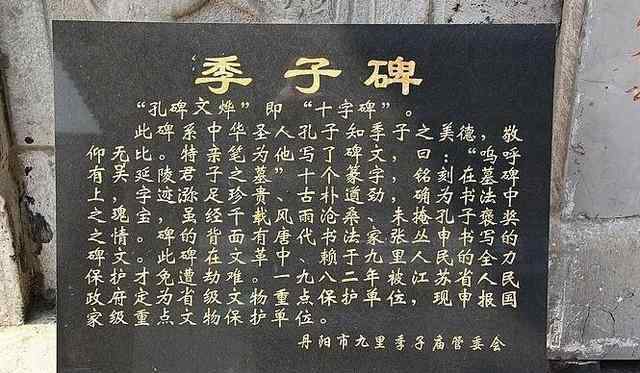 季子碑
“孔碑文烨”即“十字碑”。
此碑系中华圣人孔子知季子之美德，敬
仰无比。特亲笔为他写了碑文，曰：“呜呼
有吴延陵君子之墓”十个篆字，铭刻在墓碑
上，字迹漲足珍贵、古朴遒劲，确为书法中
之瑰宝，虽经千载风雨沧桑、未掩孔子褒奖
之情。碑的背面有唐代书法家张丛申书写的
碑文。此碑在文革中、赖于九里人民的全力
保护才免遭劫难。一九八二年被江苏省人民
政府定为省级文物重点保护单位，现申报国
家级重点文物保护单位。
丹阳市九里季子庙管委会